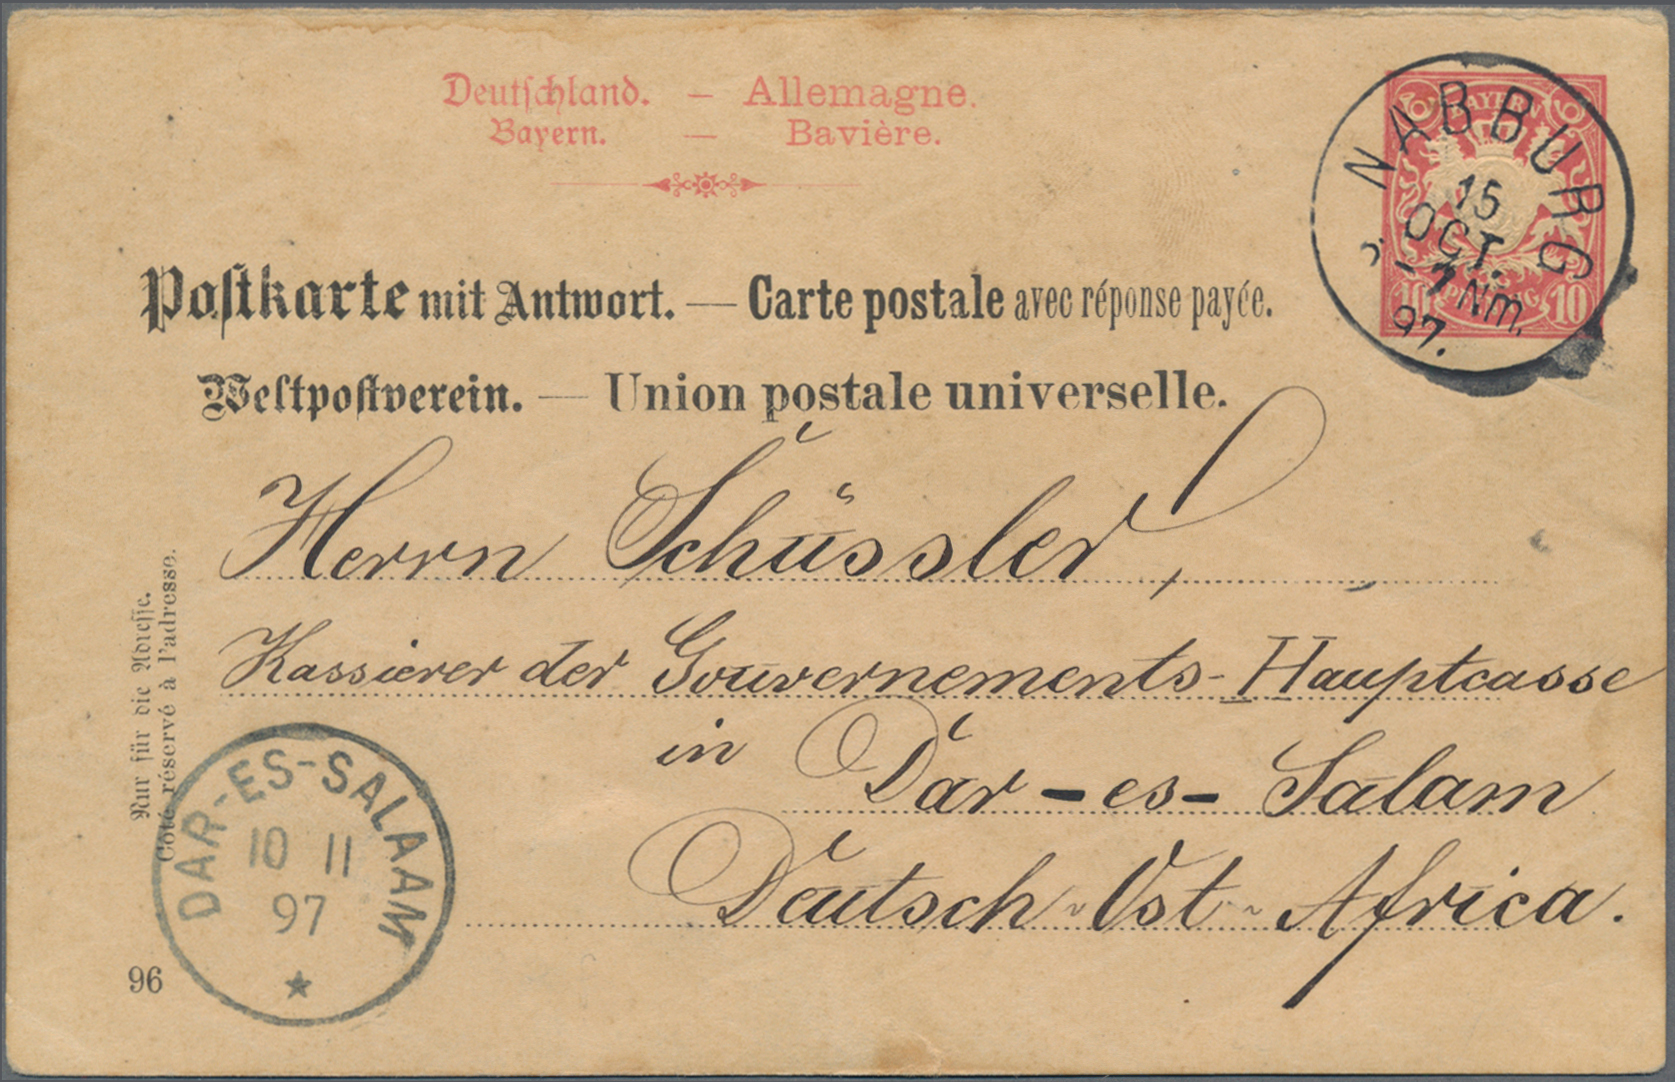 Deutschland. — Allemagne.
Bayern. — Bavière.
BAYERN
10 10
NABBURG
15
OCT.
5-7 Nm.
97.
Postkarte mit Antwort. — Carte postale avec réponse payée.
Weltpostverein. — Union postale universelle.
Herrn Schüssler,
Kassierer der Gouvernements-Hauptcasse
in Dar-es-Salam
Deutsch-Ost-Africa.
Nur für die Adresse.
Côté réservé à l'adresse.
DAR-ES-SALAAM
10 11
97
96